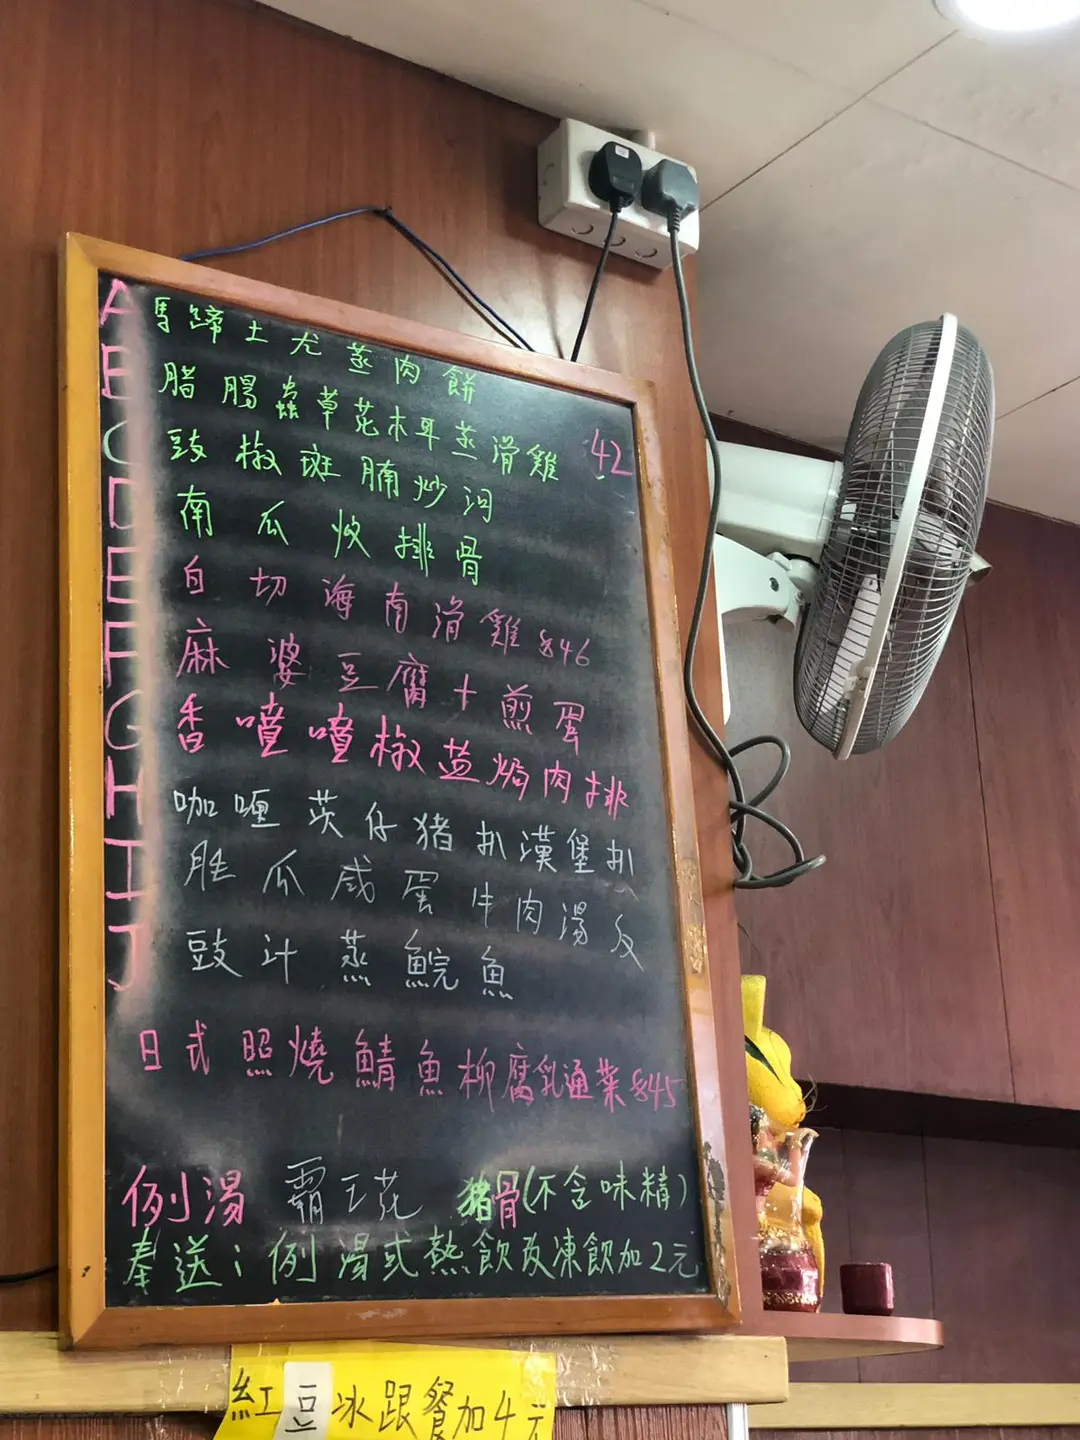 A 馬蹄土尤蒸肉餅
B 腊腸蟲草花木耳蒸滑雞 42
C 豉椒斑腩炒河
D 南瓜炆排骨
E 白切海南滑雞 $46
F 麻婆豆腐+煎蛋
G 香噴噴椒盐焗肉排
H 咖喱茨仔猪扒漢堡扒
I 胜瓜咸蛋牛肉湯反
J 豉汁蒸鯇魚
日式照燒鯖魚柳腐乳通菜 $45
例湯 霸王花 猪骨(不含味精)
奉送:例湯或熱飲改凍飲加2元
紅豆冰跟餐加4元